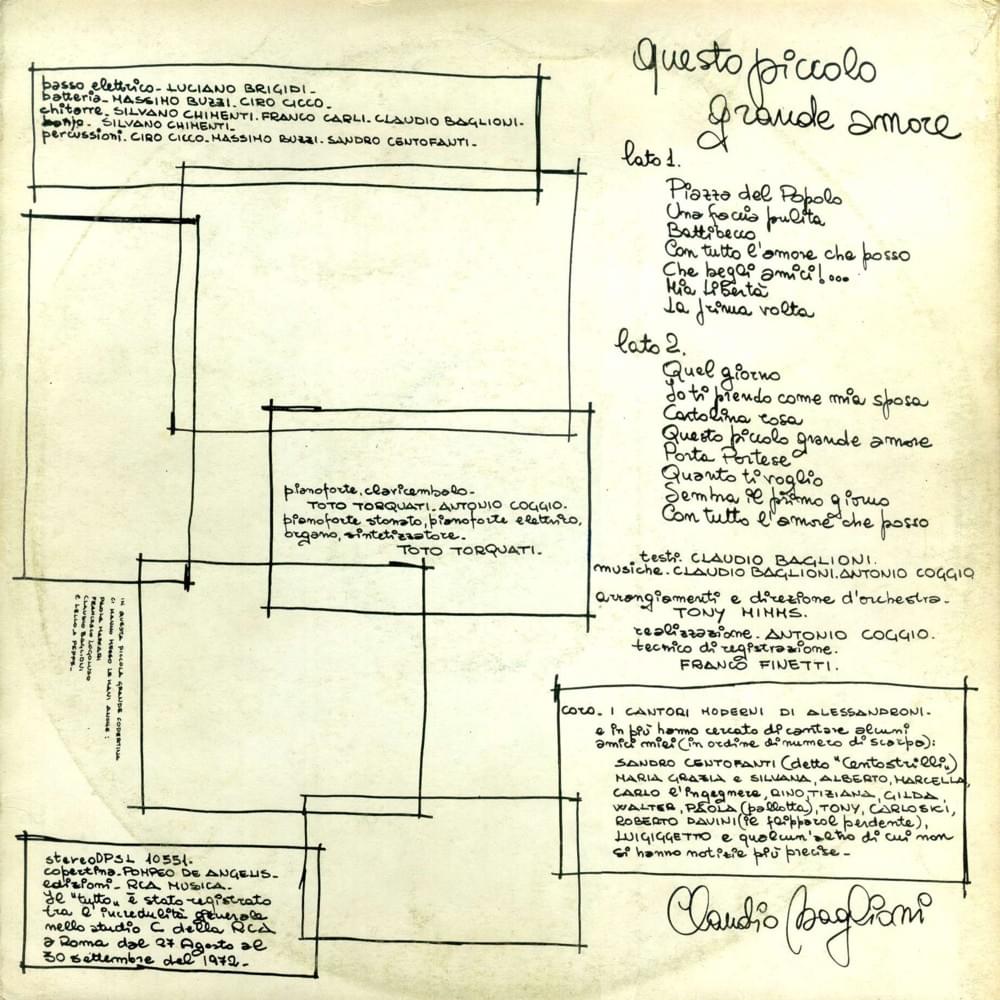 basso elettrico - LUCIANO BRIGIDI -
batteria - MASSIMO BUZZI. CIRO CICCO -
chitarre. SILVANO CHIMENTI. FRANCO CARLI. CLAUDIO BAGLIONI.
banjo. SILVANO CHIMENTI.
percussioni. CIRO CICCO. MASSIMO BUZZI. SANDRO CENTOFANTI -
pianoforte, clavicembalo -
TOTO TORQUATI. ANTONIO COGGIO.
pianoforte stonato, pianoforte elettrico,
organo, sintetizzatore -
TOTO TORQUATI.
IN QUESTA PICCOLA GRANDE COPERTINA
CI HANNO MESSO LE MANI ANCHE:
PAOLA MASSARI
FRANCESCO LOGOLUSO
CLAUDIO BAGLIONI
E LELLO, A PEPPE -
stereo DPSL 10551.
copertina. POMPEO DE ANGELIS -
edizioni - RCA MUSICA -
Il "tutto" è stato registrato
tra l'incredulità generale
nello studio C della RCA
a Roma dal 27 Agosto al
30 settembre del 1972 -
Questo piccolo
grande amore
lato 1.
Piazza del Popolo
Una faccia pulita
Battibecco
Con tutto l'amore che posso
Che begli amici!...
Mia libertà
La prima volta
lato 2.
Quel giorno
Io ti prendo come mia sposa
Cartolina rosa
Questo piccolo grande amore
Porta Portese
Quanto ti voglio
Sembra il primo giorno
Con tutto l'amore che posso
testi. CLAUDIO BAGLIONI.
musiche. CLAUDIO BAGLIONI. ANTONIO COGGIO
arrangiamenti e direzione d'orchestra -
TONY MIMMS.
realizzazione. ANTONIO COGGIO.
tecnico di registrazione.
FRANCO FINETTI.
coro. I CANTORI MODERNI DI ALESSANDRONI -
e in più hanno cercato di cantare alcuni
amici miei (in ordine di numero di scarpa):
SANDRO CENTOFANTI (detto "Centostrilli")
MARIA GRAZIA e SILVANA, ALBERTO, MARCELLA,
CARLO l'ingegnere, RINO, TIZIANA, GILDA,
WALTER, PAOLA (pallotta), TONY, CARLOSKI,
ROBERTO DAVINI (il flipparol perdente),
LUIGIGGETTO e qualcun'altro di cui non
si hanno notizie più precise -
Claudio Baglioni